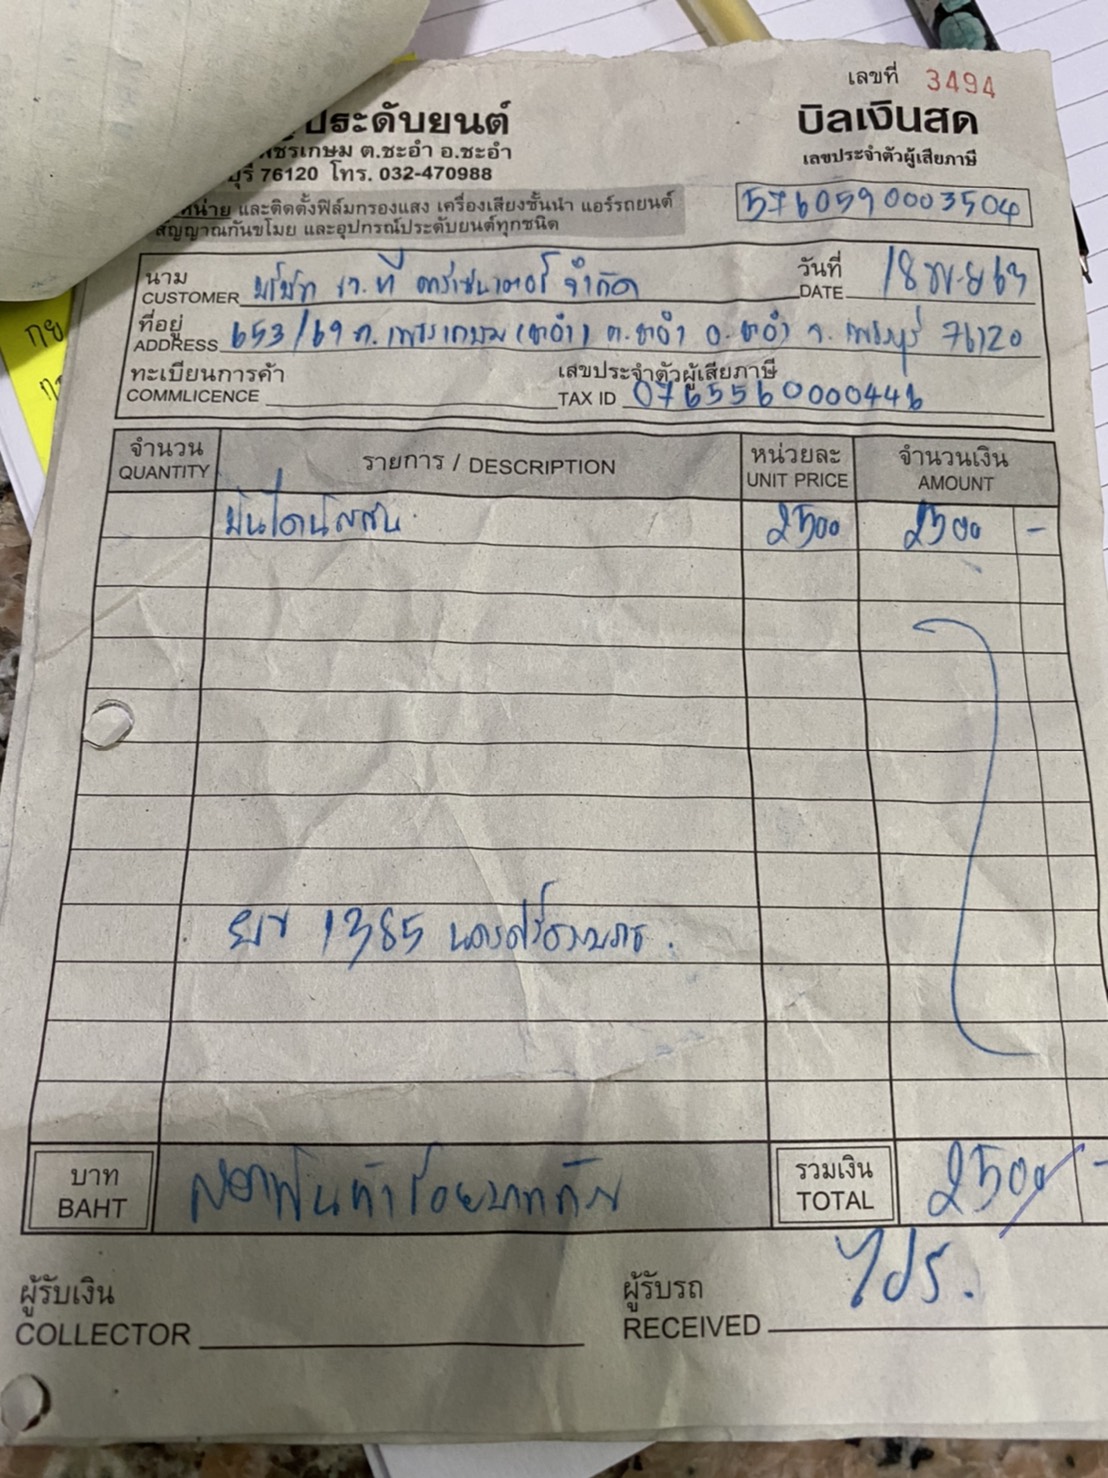 เลขที่ 3494
ประดับยนต์
บิลเงินสด
เพชรเกษม ต.ชะอำ อ.ชะอำ
เลขประจำตัวผู้เสียภาษี
บุรี 76120 โทร. 032-470988
5760590003504
หน่าย และติดตั้งฟิล์มกรองแสง เครื่องเสียงชั้นนำ แอร์รถยนต์
สัญญาณกันขโมย และอุปกรณ์ประดับยนต์ทุกชนิด
นาม
CUSTOMER บริษัท จำกัด
วันที่
DATE 18 พ.ย 63
ที่อยู่
ADDRESS 653/69 ถ. เพชรเกษม (ชะอำ) ต. ชะอำ อ. ชะอำ จ. เพชรบุรี 76120
ทะเบียนการค้า
COMMLICENCE
เสขประจำตัวผู้เสียภาษี
TAX ID 0765560000446
จำนวน
QUANTITY
รายการ / DESCRIPTION
หน่วยละ
UNIT PRICE
จำนวนเงิน
AMOUNT
บันไดนิสสัน 2500 2500 -
ยข 1385 นครศรีธรรมราช.
บาท
BAHT
สองพันห้าร้อยบาทถ้วน
รวมเงิน
TOTAL
2500 -
ผู้รับเงิน
COLLECTOR
ผู้รับรถ
RECEIVED